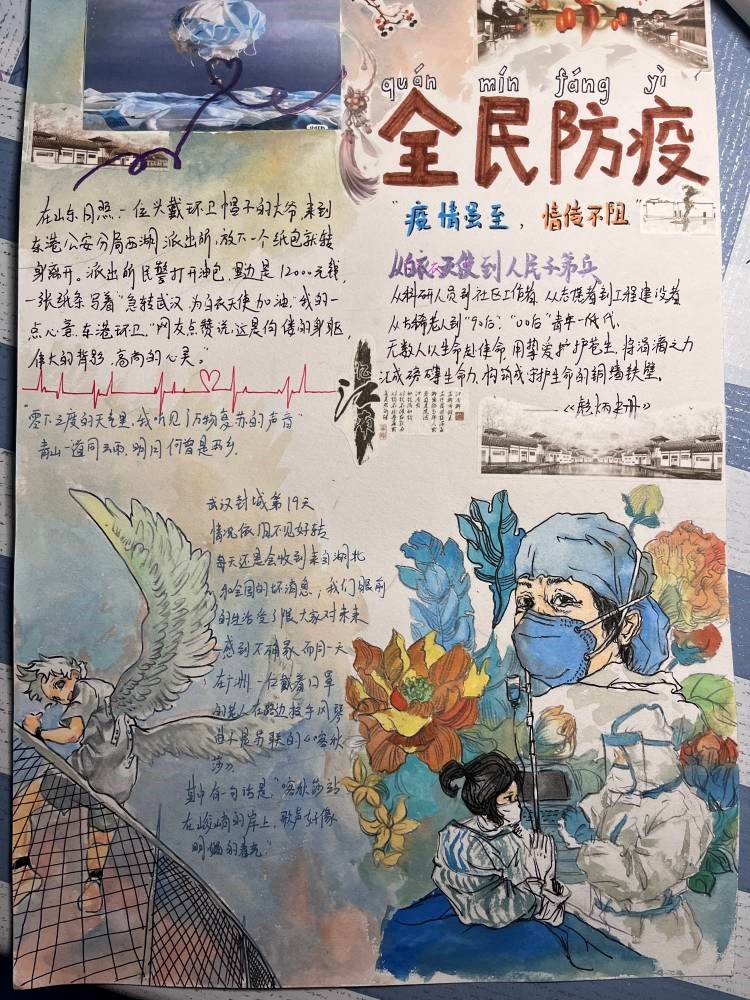 quán mín fáng yì
全民防疫
"疫情虽至，情传不阻"
在山东日照，一位头戴环卫帽子的大爷，来到
东港公安分局西湖派出所，放下一个纸包就转
身离开。派出所民警打开油包，里边是12000元钱，
一张纸条写着"急转武汉，为白衣天使加油。我的一
点心意，东港环卫。"网友点赞说，这是佝偻的身躯，
伟大的背影，高尚的心灵。"
"零下三度的天气里，我听见了万物复苏的声音
青山一道同云雨，明月何曾是两乡。
从白衣天使到人民子弟兵
从科研人员到社区工作者 从志愿者到工程建设者
从古稀老人到"90后"、"00后"青年一代代
无数人以生命赴使命，用挚爱护苍生，将涓滴之力
汇成磅礴生命力，构筑成守护生命的铜墙铁壁。
忆江南
武汉封城第19天
情况依旧不见好转
每天还是会收到来自湖北
和全国的坏消息，我们眼前
的生活变了很大家对未来
感到不确定 而同一天
在广州 一位戴着口罩
的老人在路边拉手风琴
的是苏联的《喀秋
莎》
其中有一句话是："喀秋莎站
在峻峭的岸上，歌声好像
明媚的春光。"